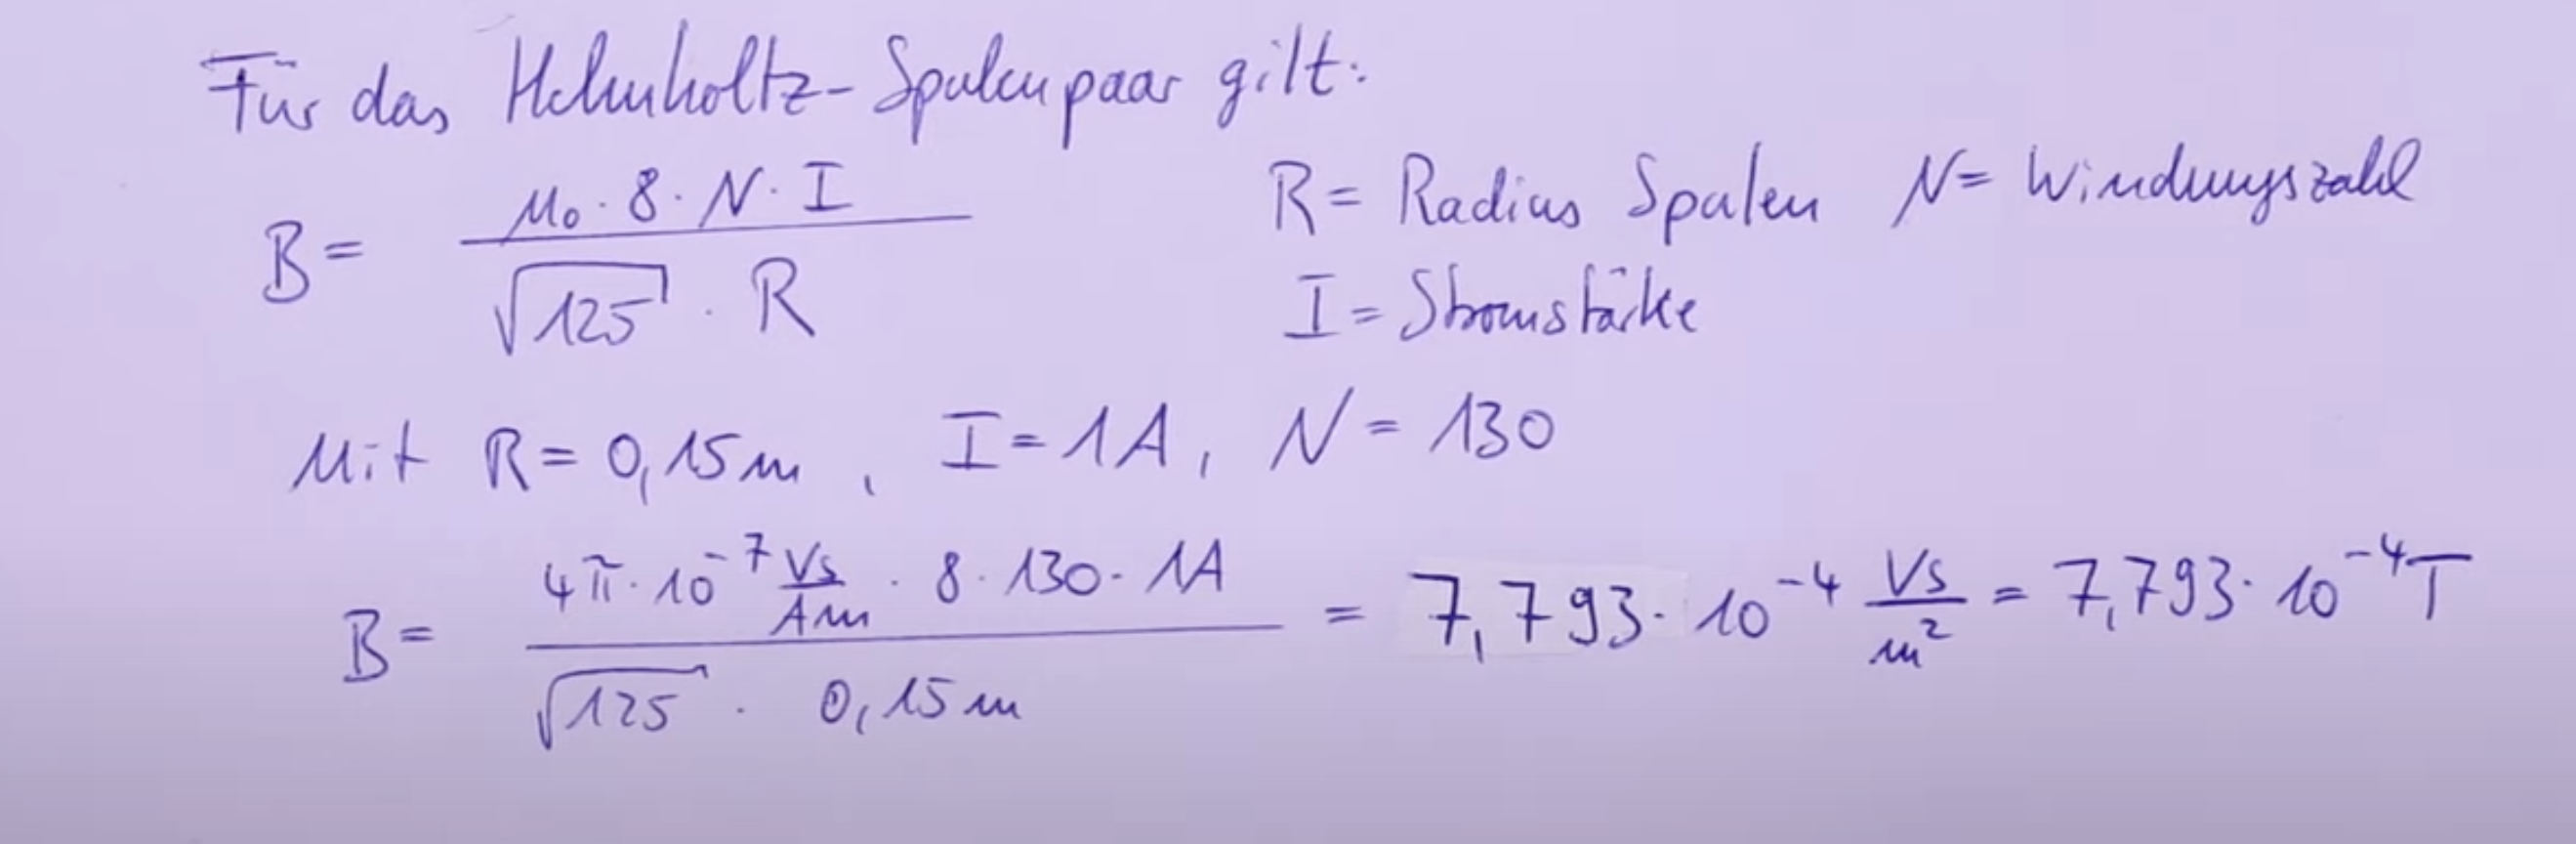 Für das Helmholtz-Spulenpaar gilt:
B = μ₀ · 8 · N · I / √125 · R
R = Radius Spulen N = Windungszahl
I = Stromstärke
Mit R = 0,15m, I = 1A, N = 130
B = 4π · 10⁻⁷ Vs/Am · 8 · 130 · 1A / √125 · 0,15m = 7,793 · 10⁻⁴ Vs/m² = 7,793 · 10⁻⁴ T